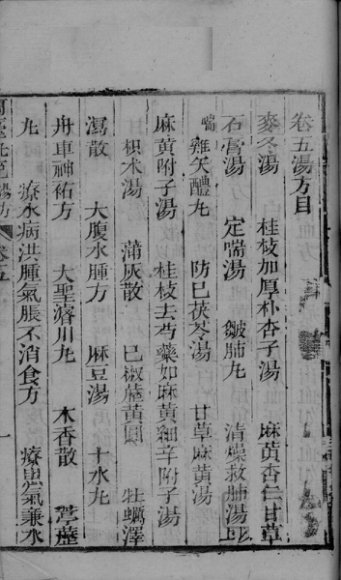 卷五湯方目
麥冬湯 桂枝加厚朴杏子湯 麻黃杏仁甘草
石膏湯 定喘湯 皺肺丸 清燥救肺湯
喘 雞矢醴丸 防已茯苓湯 甘草麻黃湯
麻黃附子湯 桂枝去芍藥如麻黃細辛附子湯
枳术湯 蒲灰散 已椒藶黃圓 牡蠣澤
瀉散 大腹水腫方 麻豆湯 十水丸
舟車神祐方 大聖濬川丸 木香散 葶藶
丸 療水病洪腫氣脹不消食方 療患氣兼水
卷五
一